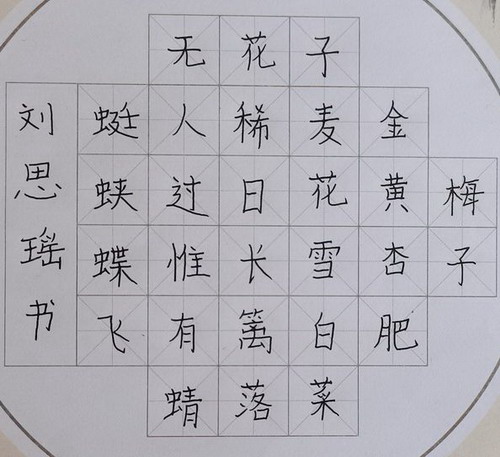 梅子
金黄杏肥
子麦花雪白菜
花稀日长篱落
无人过惟有蜻
蜓蛱蝶飞
刘思瑶书